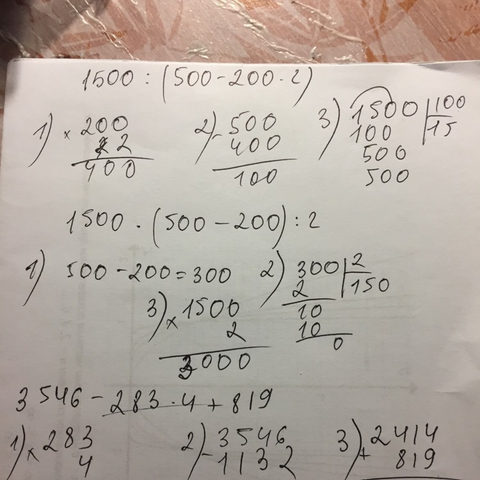 1500 : (500-200·2)
1) × 200
2
400
2) - 500
400
100
3) 1500 | 100
100 15
500
500
1500 · (500 - 200) : 2
1) 500 - 200 = 300
2) 300 | 2
2 150
10
10
0
3) × 1500
2
3000
3546 - 283·4 + 819
1) × 283
4
2) - 3546
1132
3) + 2414
819